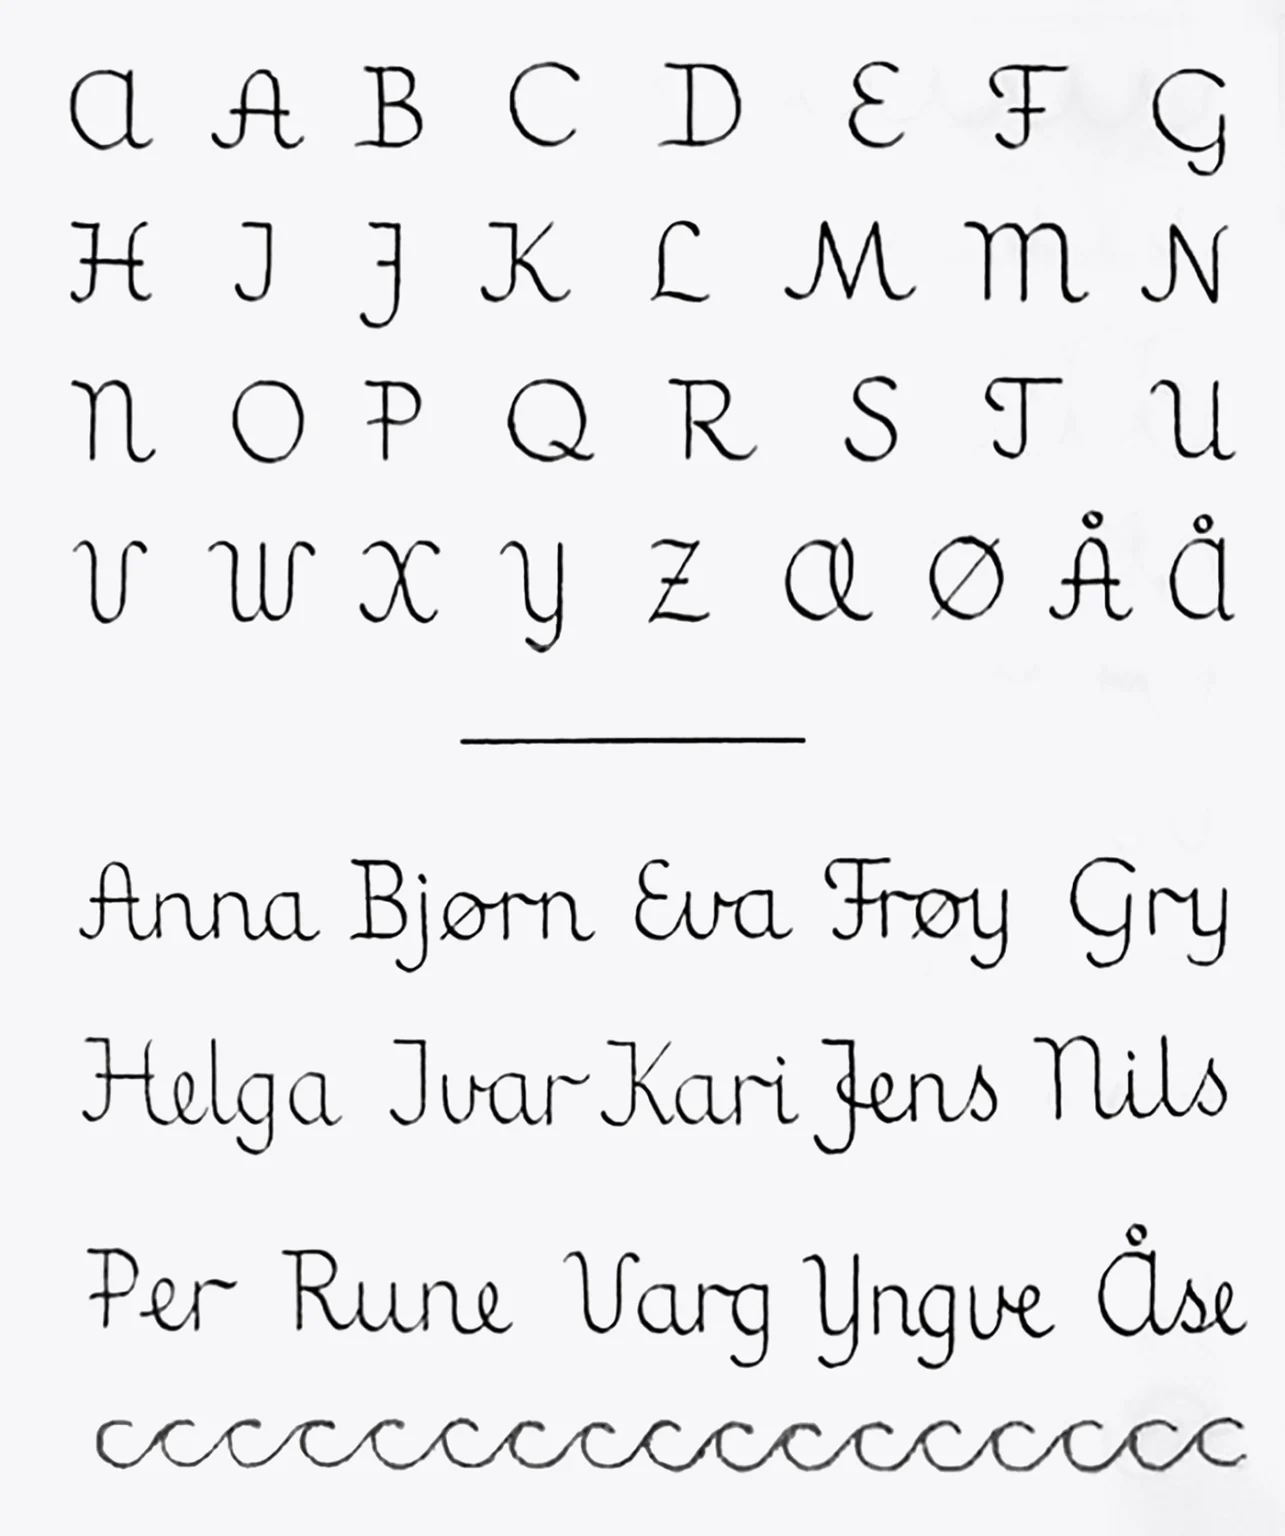 A A B C D E F G
H I J K L M M N
N O P Q R S T U
V W X Y Z Æ Ø Å Å
Anna Bjørn Eva Frøy Gry
Helga Ivar Kari Jens Nils
Per Rune Varg Yngve Åse
cccccccccccccccoc